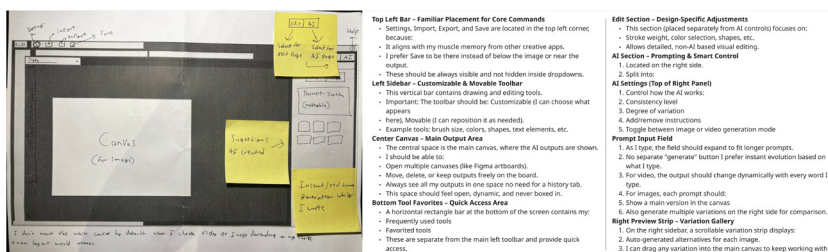 Settings
Import
Export
Save
Help
Edit | AI
Select for
Edit Page
Select for
AI Page
Canvas
(for Image)
Suggestions
AI created
Prompt Screen
(movable)
Instant/real time
Generation while
I write
I don't want the white canvas by default when I choose video or Image depending on my choice
a new layout would appear
Top Left Bar – Familiar Placement for Core Commands
• Settings, Import, Export, and Save are located in the top left corner,
because:
• It aligns with my muscle memory from other creative apps.
• I prefer Save to be there instead of below the image or near the
output.
• These should be always visible and not hidden inside dropdowns.
Left Sidebar – Customizable & Movable Toolbar
• This vertical bar contains drawing and editing tools.
• Important: The toolbar should be: Customizable (I can choose what
appears
• here), Movable (I can reposition it as needed).
• Example tools: brush size, colors, shapes, text elements, etc.
Center Canvas – Main Output Area
• The central space is the main canvas, where the AI outputs are shown.
• I should be able to:
• Open multiple canvases (like Figma artboards).
• Move, delete, or keep outputs freely on the board.
• Always see all my outputs in one space no need for a history tab.
• This space should feel open, dynamic, and never boxed in.
Bottom Tool Favorites – Quick Access Area
• A horizontal rectangle bar at the bottom of the screen contains my:
• Frequently used tools
• Favorited tools
• These are separate from the main left toolbar and provide quick
access.
Edit Section – Design-Specific Adjustments
• This section (placed separately from AI controls) focuses on:
• Stroke weight, color selection, shapes, etc.
• Allows detailed, non-AI based visual editing.
AI Section – Prompting & Smart Control
1. Located on the right side.
2. Split into:
AI Settings (Top of Right Panel)
1. Control how the AI works:
2. Consistency level
3. Degree of variation
4. Add/remove instructions
5. Toggle between image or video generation mode
Prompt Input Field
1. As I type, the field should expand to fit longer prompts.
2. No separate "generate" button I prefer instant evolution based on
what I type.
3. For video, the output should change dynamically with every word I
type.
4. For images, each prompt should:
5. Show a main version in the canvas
6. Also generate multiple variations on the right side for comparison.
Right Preview Strip – Variation Gallery
1. On the right sidebar, a scrollable variation strip displays:
2. Auto-generated alternatives for each image.
3. I can drag any variation into the main canvas to keep working with